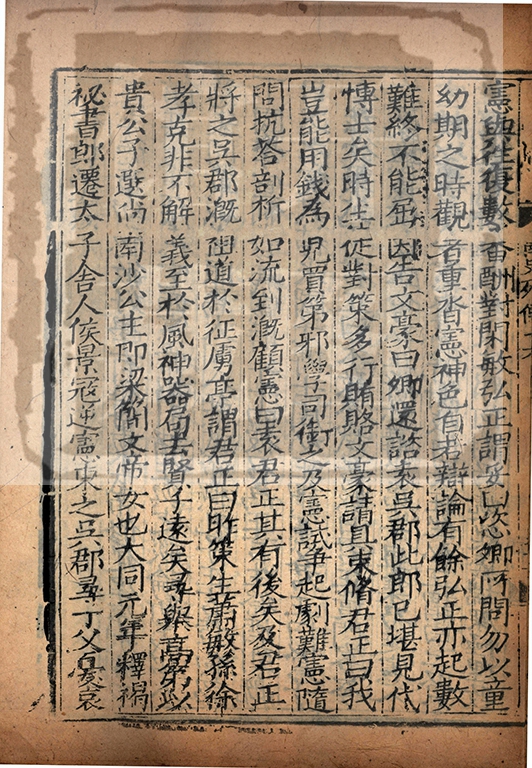 憲與往復數番酬對閑敏弘正謂妥曰恣卿所問勿以童
幼期之時觀者重沓憲神色自若辯論有餘弘正亦起數
難終不能屈因告文豪曰卿還諮袁吳郡此郎已堪見代
博士矣時生徒對策多行賄賂文豪請具束脩君正曰我
豈能用錢為兒買第邪學司銜之及憲試爭起劇難憲隨
問抗荅剖析如流到溉顧憲曰袁君正其有後矣及君正
將之吳郡溉祖道於征虜亭謂君正曰昨策生蕭敏孫徐
孝克非不解義至於風神器局去賢子遠矣尋舉高第以
貴公子選尚南沙公主即梁簡文帝女也大同元年釋褐
祕書郎遷太子舍人侯景寇逆憲東之吳郡尋丁父憂哀